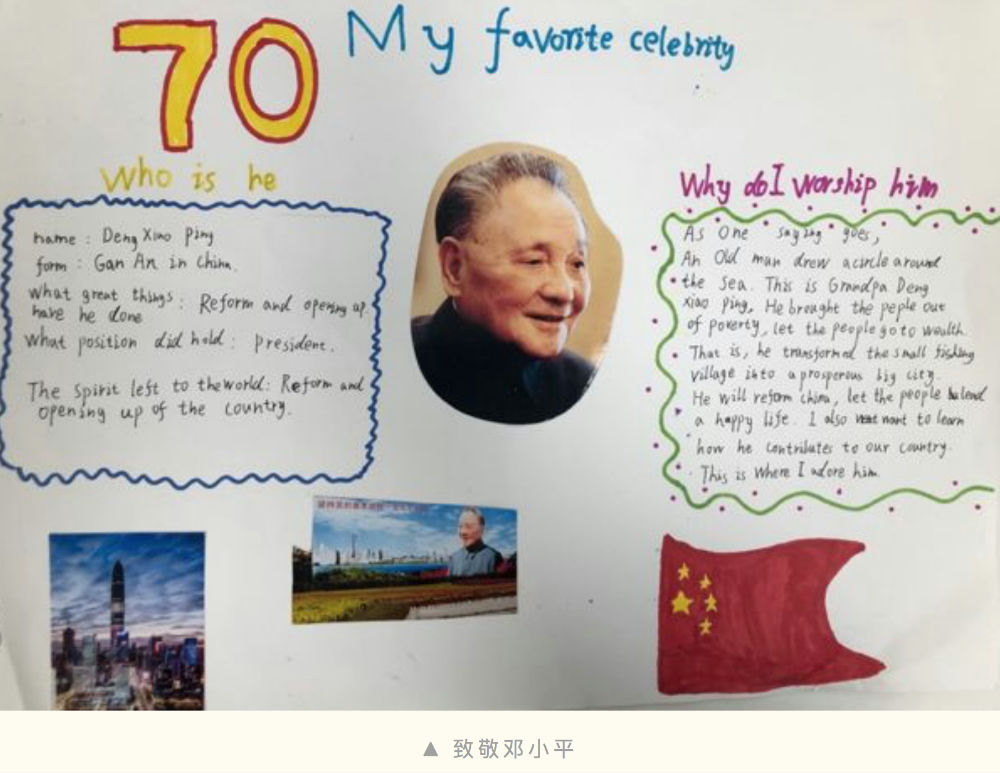 70
My favorite celebrity
Who is he
name : Deng Xiao Ping
form : Gan An in China.
what great things : Reform and opening up.
have he done
what position did hold : president.
The Spirit left to the world : Reform and
opening up of the country.
Why do I worship him
As One saying goes,
An Old man drew a circle around
the Sea. This is Grandpa Deng
Xiao Ping. He brought the peple out
of poverty, let the people go to wealth.
That is, he transformed the small fishing
village into a prosperous big city.
He will reform china, let the people lend
a happy life. I also want to learn
how he contributes to our country.
This is where I adore him.
▲ 致敬邓小平